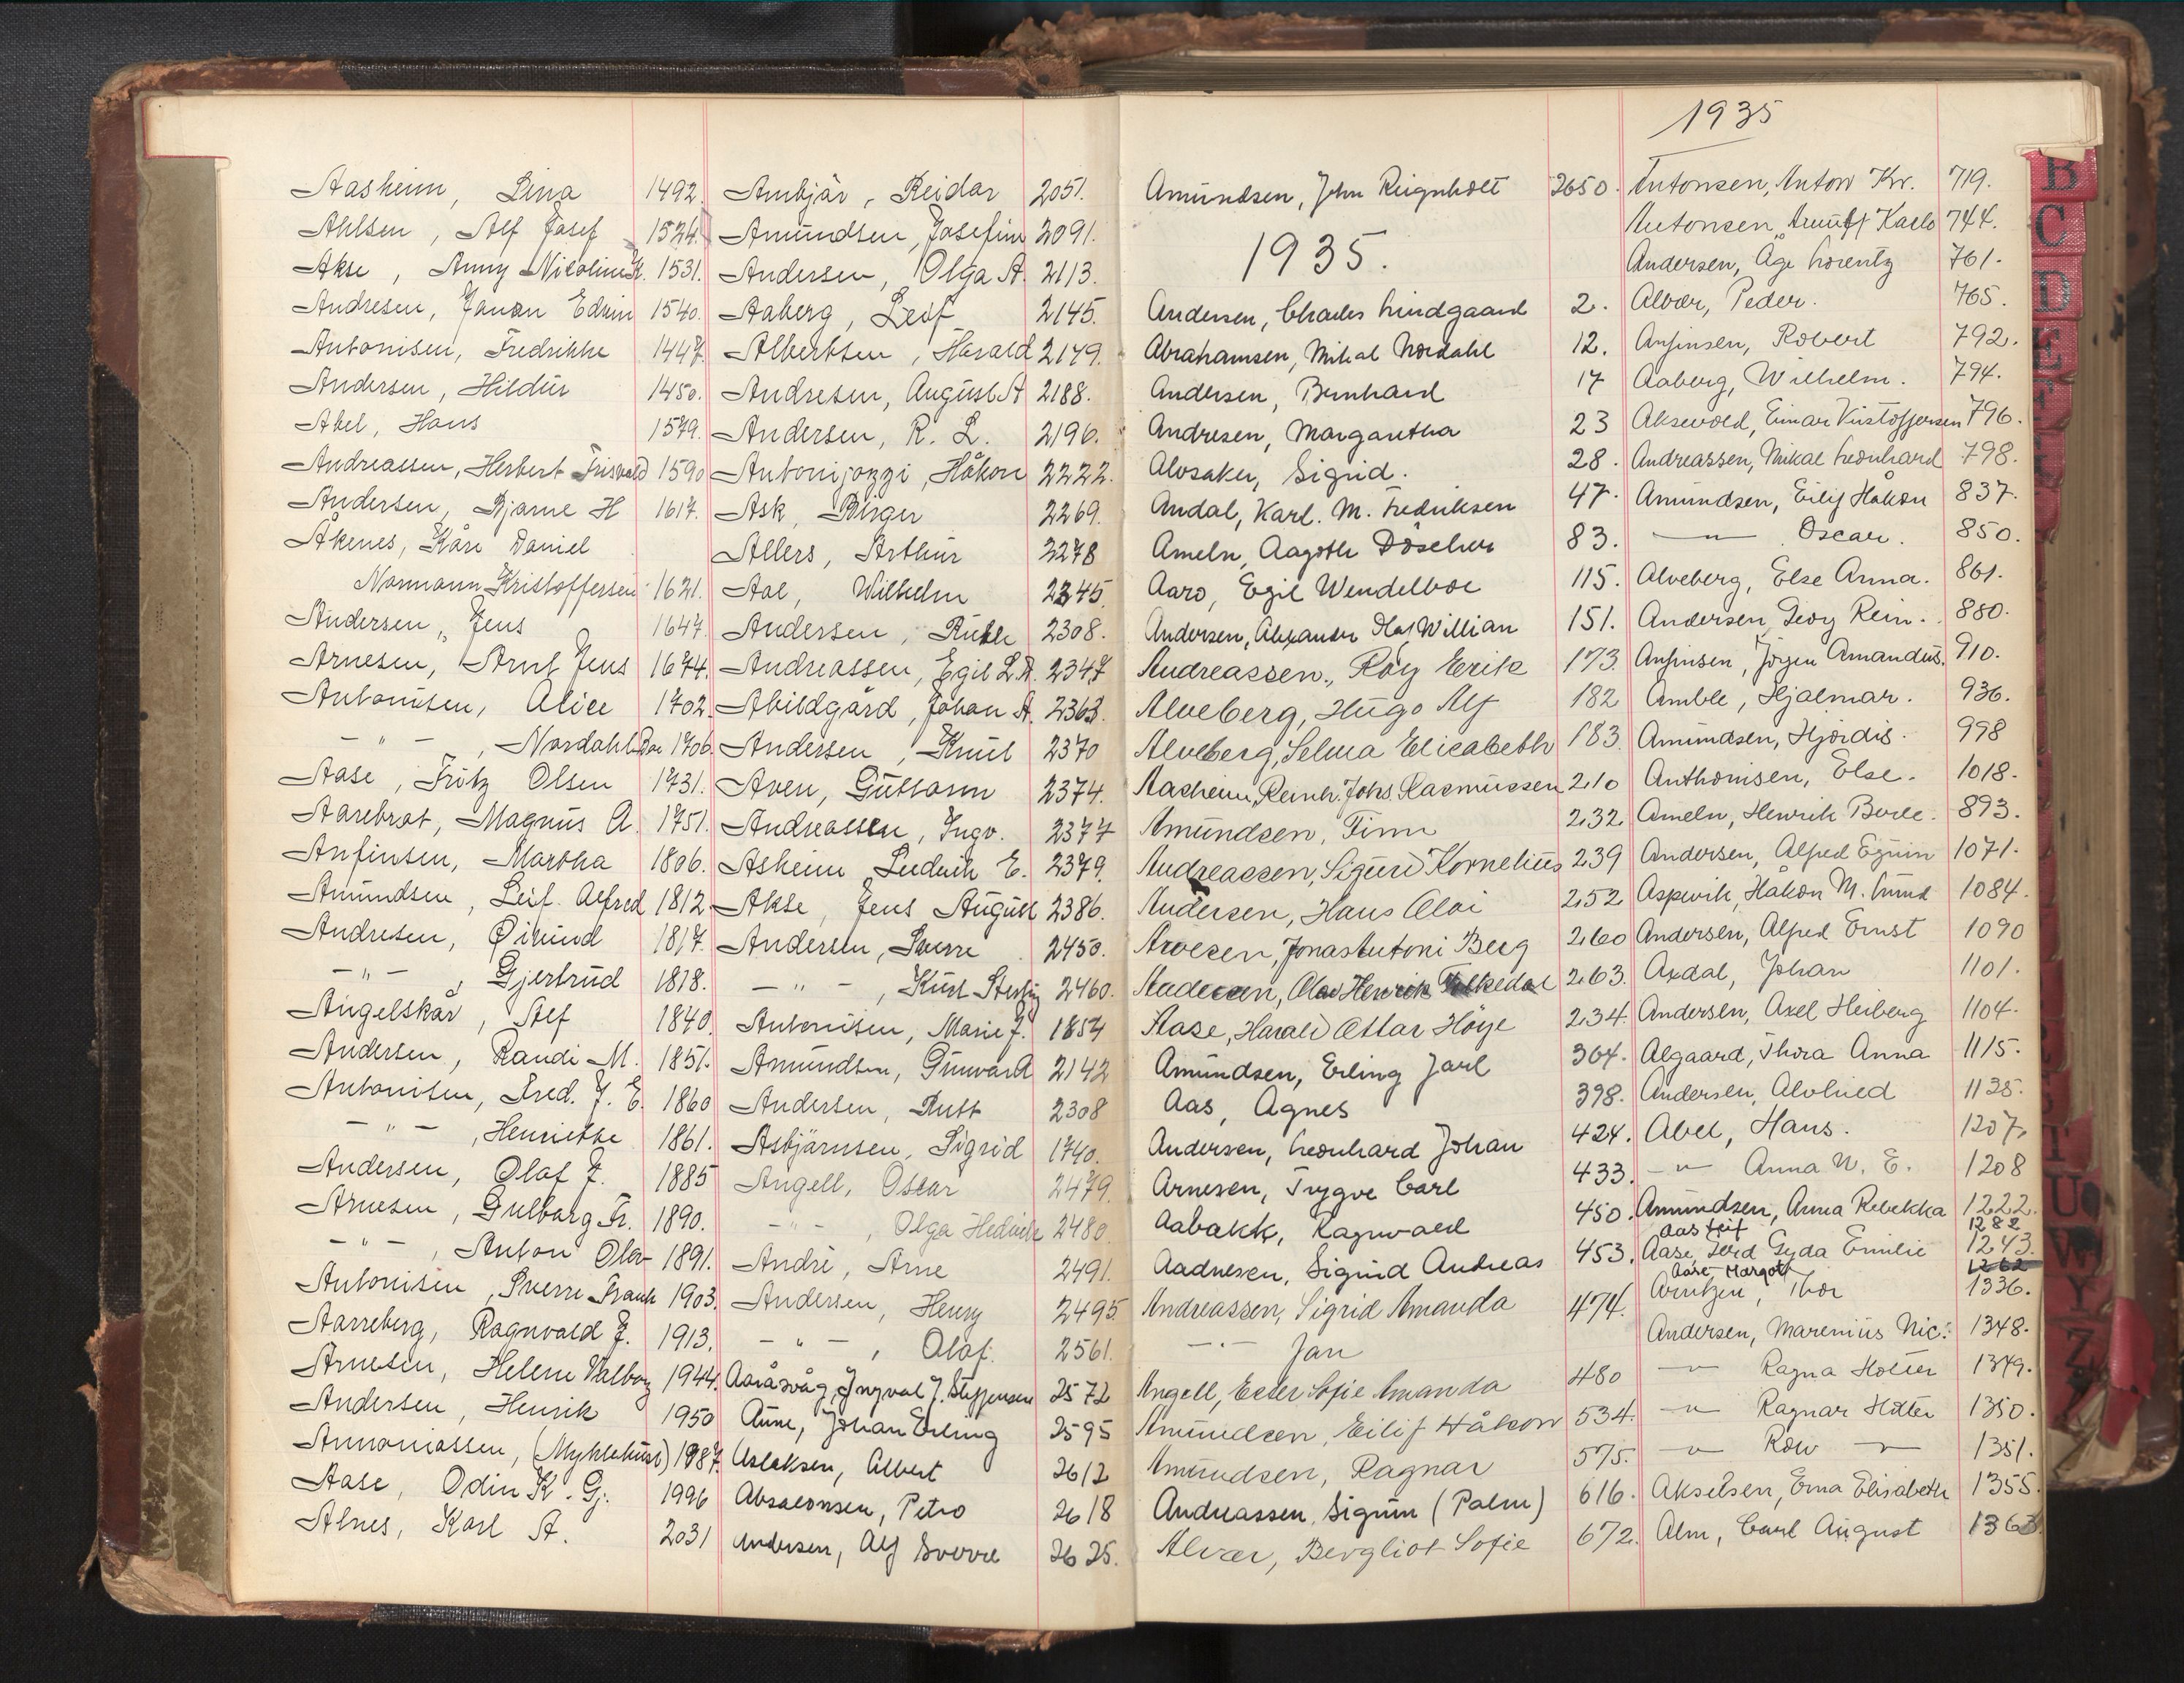 Aasheim, Lina 1492.
Ahlsen, Alf Josef 1524.
Akse, Anny Nicoline K. 1531.
Andresen, Edvin 1540.
Antonisen, Fredrikke 1447.
Andersen, Hildur 1450.
Abel, Hans 1579.
Andreassen, Herbert 1590
Andersen, Bjarne H 1617.
Åkenes, Kåre Daniel
Normann Kristoffersen 1621.
Andersen, Jens 1647.
Arnesen, Arnt Jens 1674.
Antonisen, Alice 1702.
— " — , Nordahl 1706.
Aase, Fritz Olsen 1731.
Aarebrot, Magnus A. 1751.
Anfinsen, Martha 1806.
Amundsen, Leif Alfred 1812
Andresen, Øivind 1817.
— " — , Gjertrud 1818.
Angelskår, Alf 1840.
Andersen, Randi M. 1851.
Antonisen, Fred. J. E. 1860
— " — , Henriette 1861.
Andersen, Olaf J. 1885
Arnesen, Gulborg Fr. 1890.
— " — , Anton Olav 1891.
Antonisen, Sverre Frank 1903.
Aarreberg, Ragnvald J. 1913.
Arnesen, Helene Valborg 1944.
Andersen, Henrik 1950
Annaniassen, (Myklebust) 1987.
Aase, Odin K. Gj. 1996
Alnes, Karl A. 2031
Ambjør, Reidar 2051.
Amundsen, Josefine 2091.
Andersen, Olga A. 2113.
Aaberg, Leif 2145.
Albertsen, Harald 2149.
Andresen, August A 2188.
Andersen, R. L. 2196.
Antonijozzi, Håkon 2222.
Ask, Birger 2269.
Allers, Arthur 2278
Aal, Wilhelm 2345.
Andersen, 2308.
Andreassen, Egil L. A. 2347
Abildgård, Johan A. 2363.
Andersen, Knut 2370
Aven, Guttorm 2374.
Andreassen, Ingv. 2377
Asheim Ludvik E. 2379.
Akse, Jens August 2386.
Andersen, Sverre 2450.
— " — , Kurt 2460.
Antonisen, Marie J. 1854
Amundsen, Gunvor A 2142
Andersen, Rutt 2308
Asbjørnsen, Sigrid 1740.
Angell, Oscar 2479.
— " — , Olga Hedvik 2480.
André, Arne 2491.
Andersen, Henry 2495
— " — , Olaf. 2561.
Ingval J. Steffensen 2572
Aune, Johan Erling 2595
Aslaksen, Albert 2612
Absalonsen, Petra 2618
Andersen, Alf Sverre 2625.
Amundsen, John Reignholt 2650.
1935.
Andersen, Charles Lindgaard 2.
Abrahamsen, Mikal Nordahl 12.
Andersen, Bernhard 17
Andresen, Margaretha 23
Alvsaker, Sigrid. 28.
Andal, Karl. M. Fredriksen 47.
Ameln, Aagoth Döscher 83.
Aarø, Egil Wendelboe 115.
Andersen, Alexander Olaf Willian 151.
Andreassen, Roy Erik 173.
Alveberg, Hugo Alf 182
Alveberg, Selma Elisabeth 183.
Aasheim, Reinh. Johs. Rasmussen 210
Amundsen, Finn 232.
Andreassen, Sigurd Kornelius 239
Andersen, Hans Olai 252
Arvesen, Jonas Antoni Berg 260
Olav Henrik 263.
Aase, Harald Ottar Höye 234.
Amundsen, Erling Jarl 364.
Aas, Agnes 398.
Andersen, Leonhard Johan 424.
Arnesen, Trygve Carl 433.
Aabakk, Ragnvald 450.
Aadnesen, Sigurd Andreas 453.
Andreassen, Sigrid Amanda 474.
— " — Jan
Angell, Ester Sofie Amanda 480
Amundsen, Eilif Håkon 534.
Amundsen, Ragnar 575.
Andreassen, Sigrun (Palm) 616.
Alvær, Bergliot Sofie 672.
1935
Antonsen, Anton Kr. 719.
Antonsen, Karlo 744.
Andersen, Åge Lorentz 761.
Alvær, Peder. 765.
Anfinsen, Robert 792.
Aaberg, Wilhelm. 794.
Aksevold, Einar Kristoffersen 796.
Andreassen, Mikal Leonhard 798.
Amundsen, Eilif Håkon 837.
— " — Oscar. 850.
Alveberg, Else Anna. 861.
Andersen, Georg Rein. 880.
Anfinsen, Jörgen Amandus. 910.
Amble, Hjalmar. 936.
Amundsen, Hjördis. 998
Anthonisen, Else. 1018.
Ameln, Henrik 893.
Andersen, Alfred 1071.
Aspevik, Håkon M. Lund 1084.
Andersen, Alfred Ernst 1090
Axdal, Johan 1101.
Andersen, Axel Heiberg 1104.
Algaard, Thora Anna 1115.
Andersen, 1135.
Abel, Hans. 1207.
— " — Anna W. E. 1208
Amundsen, Anna Rebekka 1222.
Aas Leif 1282
Aase, Gerd Gyda Emilie 1243.
Aase Margott 1262
Arntzen, Thor 1336.
Andersen, Marenius Nic: 1348.
— " — Ragna 1349.
— " — Ragnar 1350.
— " — 1351.
Akselsen, Erna Elisabeth 1355.
Alm, Carl August 1363.
B
C
D
E
F
T
U
W
Y
Z